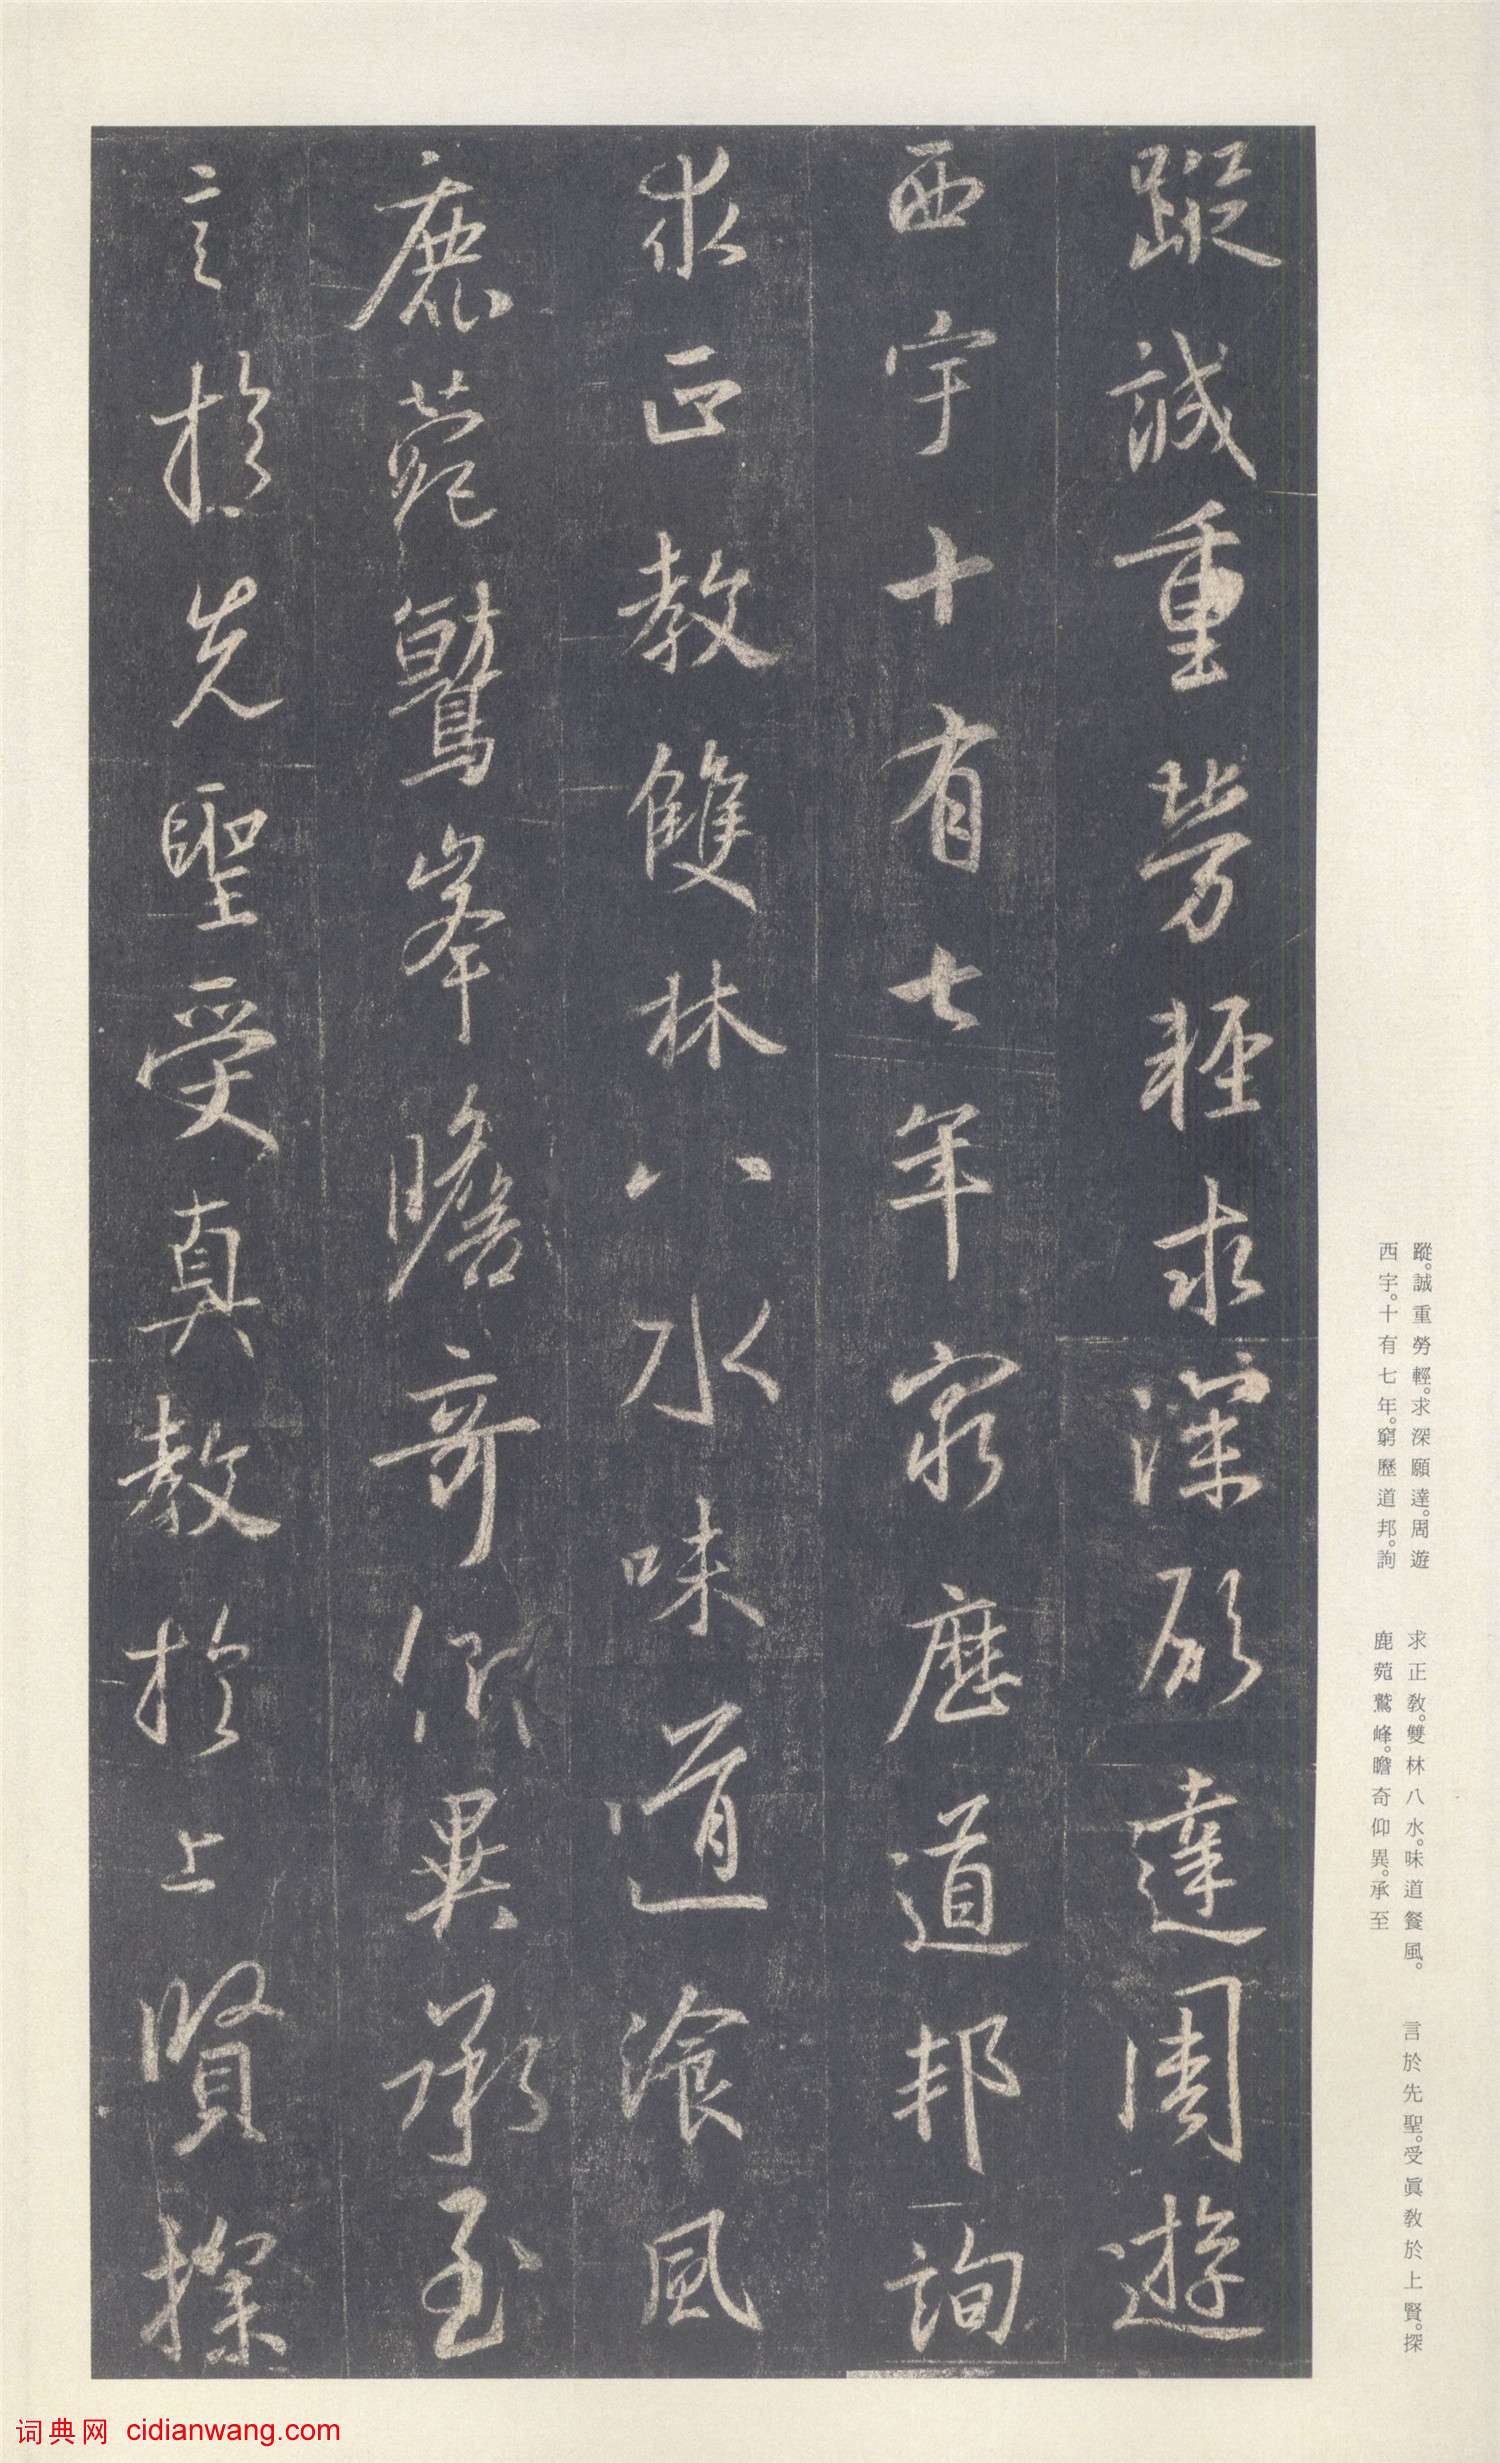 蹤誠重勞輕求深願達周遊
西宇十有七年窮歷道邦詢
求正教雙林八水味道飡風
鹿菀鷲峯瞻奇仰異承至
言於先聖受真教於上賢探
蹤。誠重勞輕。求深願達。周遊
西宇。十有七年。窮歷道邦。詢
求正教。雙林八水。味道餐風。
鹿菀鷲峰。瞻奇仰異。承至
言於先聖。受眞教於上賢。探
词典网 cidianwang.com